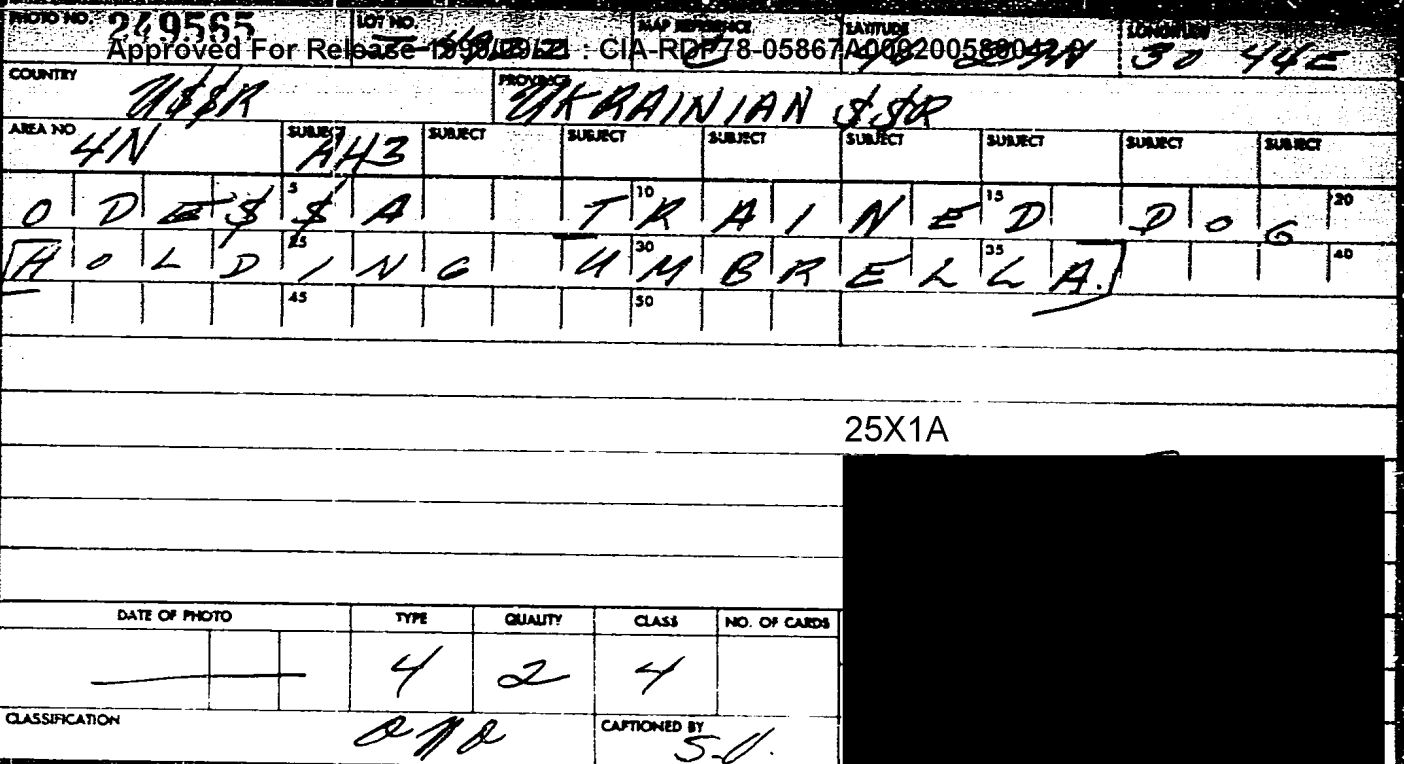 PHOTO NO. 249565 LOT NO. MAP REFERENCE LATITUDE LONGITUDE 30 44E
Approved For Release : CIA-RDP78-05867A000200580042-9
COUNTRY U$$R PROVINCE UKRAINIAN $$R
AREA NO 4N SUBJECT AH3 SUBJECT SUBJECT SUBJECT SUBJECT SUBJECT SUBJECT SUBJECT
5 10 15 20
ODE$$A TRAINED DOG
25 30 35 40
[HOLDING UMBRELLA.]
45 50
25X1A
DATE OF PHOTO TYPE QUALITY CLASS NO. OF CARDS
4 2 4
CLASSIFICATION CAPTIONED BY